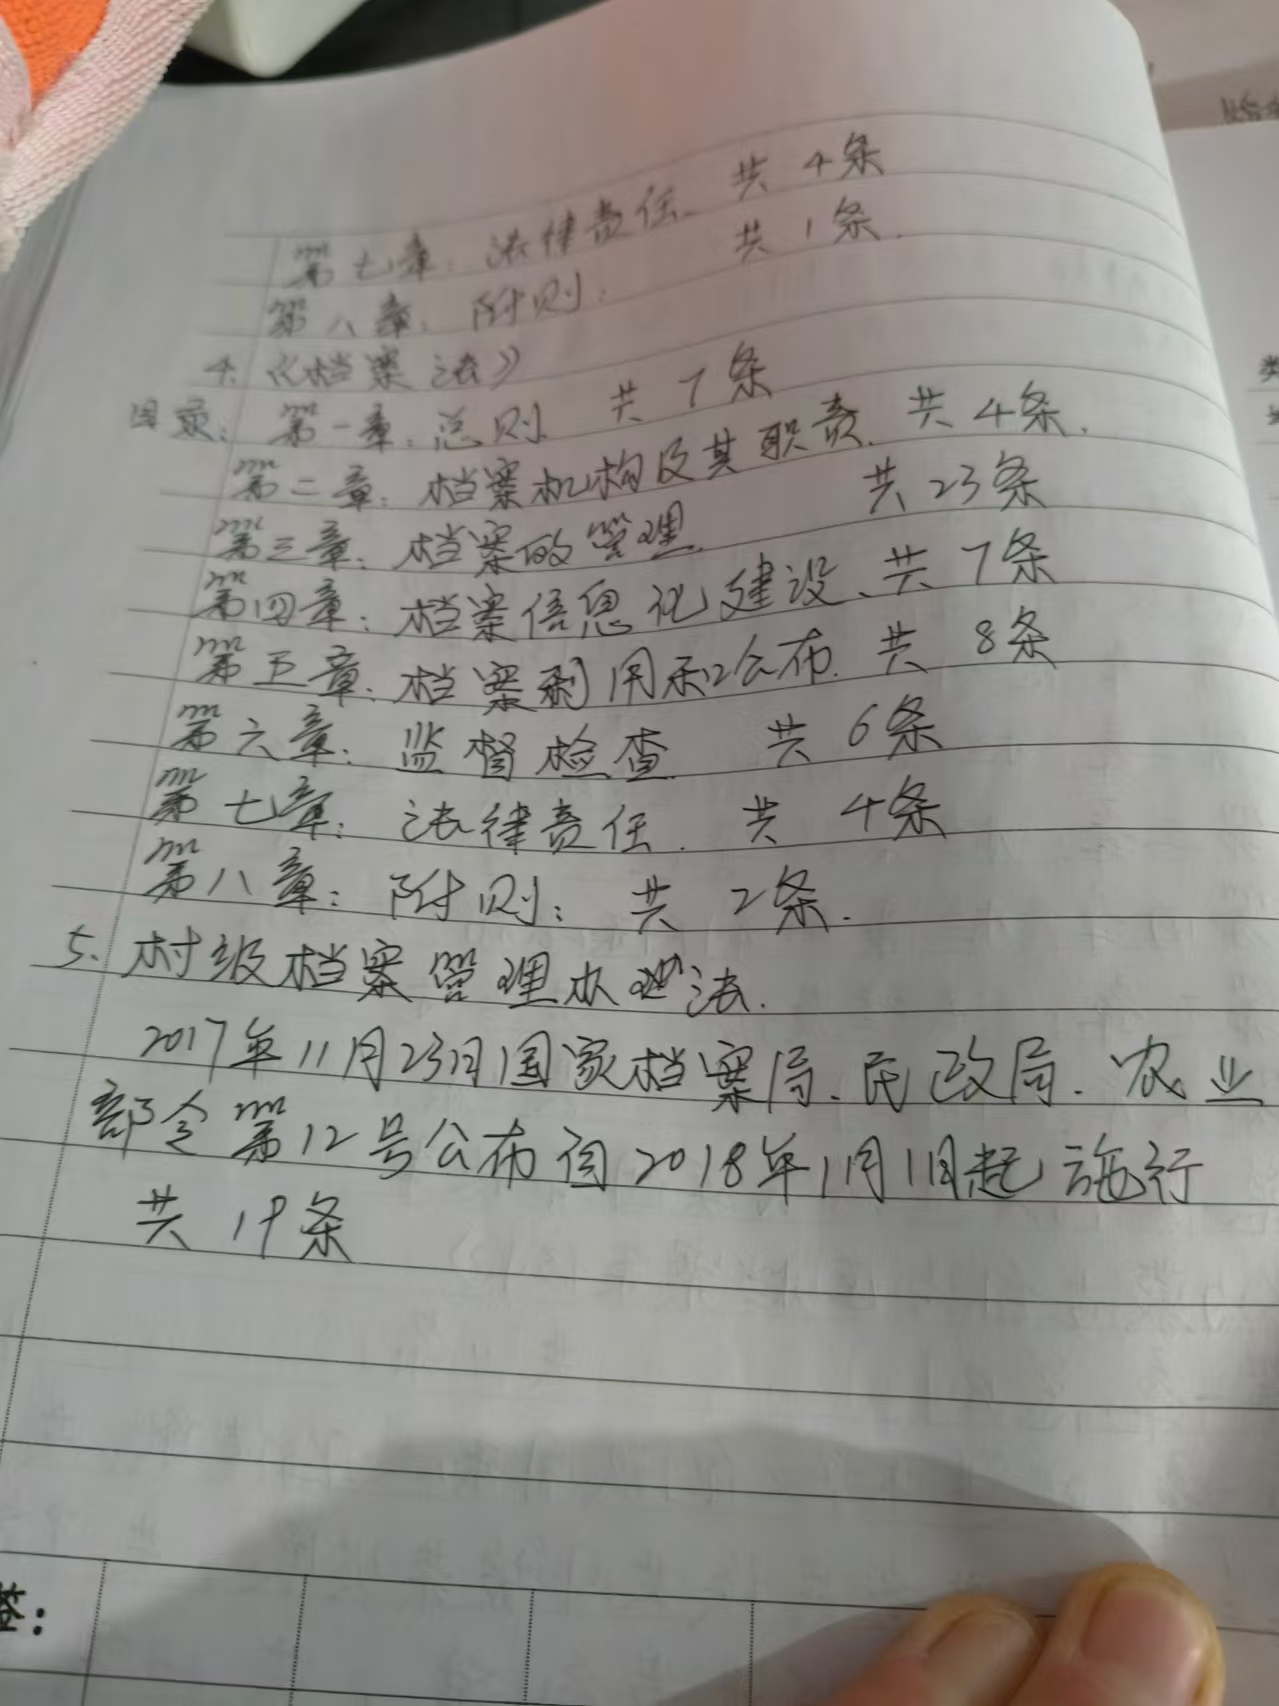 第七章：法律责任、共 4条
第八章：附则： 共 1条.
4.《档案法》
目录：第一章：总则 共 7条
第二章：档案机构及其职责. 共 4条.
第三章：档案的管理. 共 23条
第四章：档案信息化建设、共 7条
第五章：档案利用和公布. 共 8条
第六章：监督检查. 共 6条
第七章：法律责任. 共 4条
第八章：附则： 共 2条.
5.村级档案管理办法.
2017年11月23日国家档案局、民政局、农业
部令第12号公布自2018年1月1日起施行
共 19条
签：